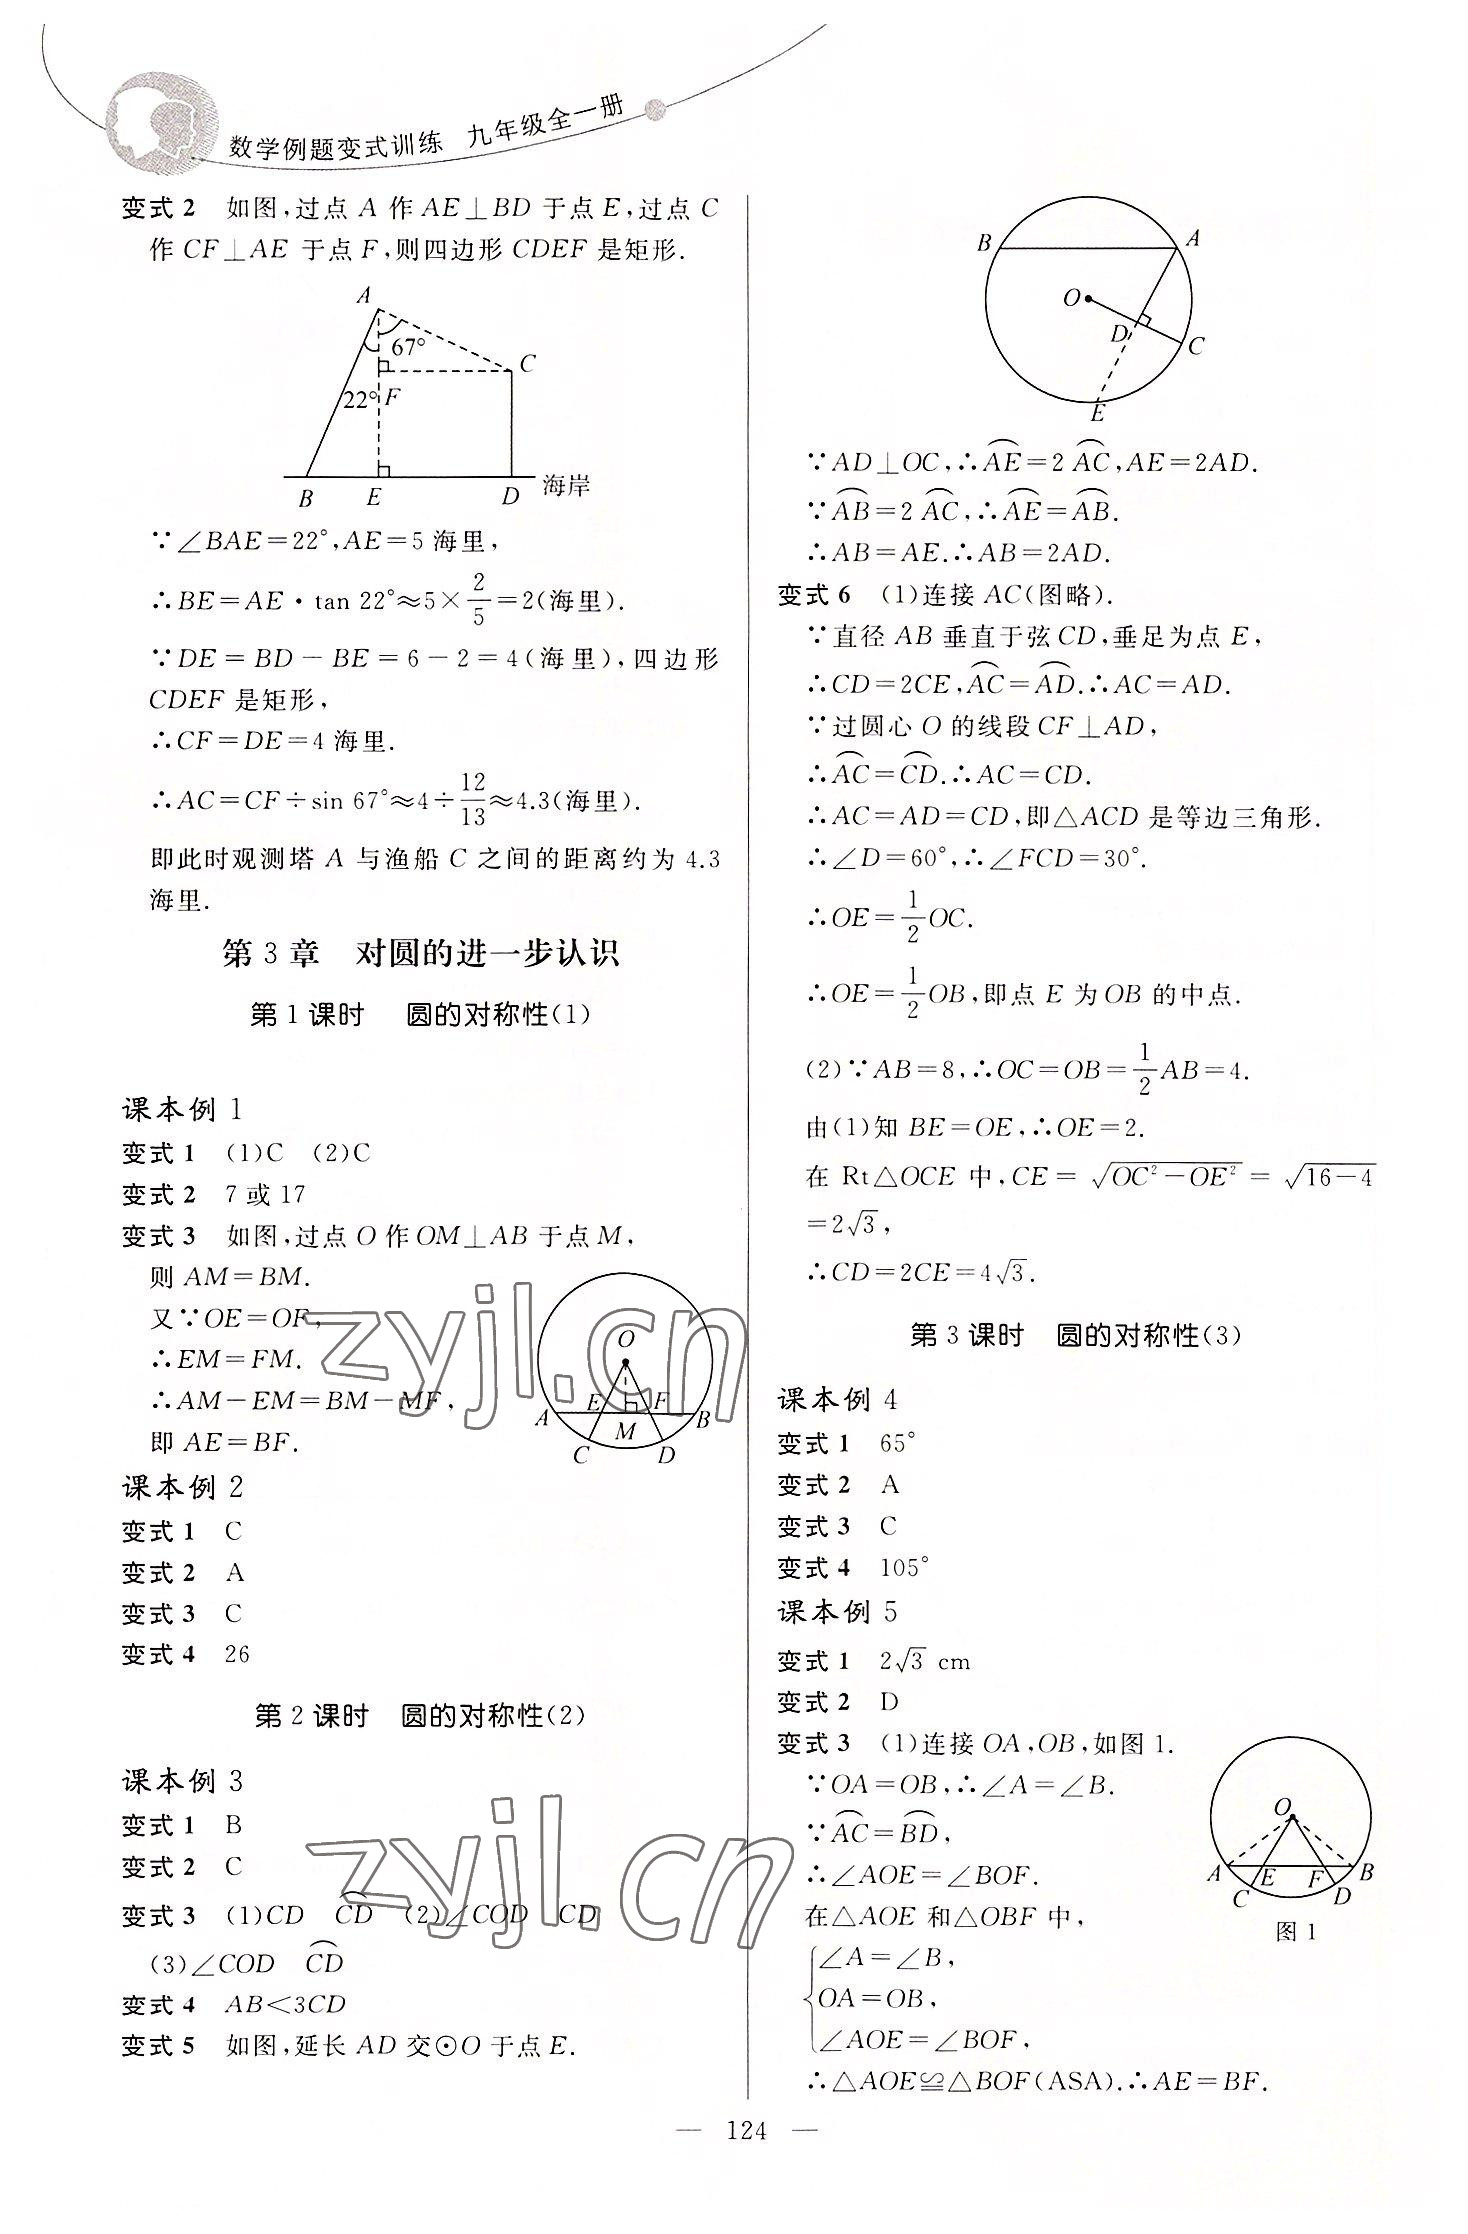 数学例题变式训练 九年级全一册
变式 2 如图,过点 A 作 AE⊥BD 于点 E,过点 C
作 CF⊥AE 于点 F,则四边形 CDEF 是矩形.
A
67°
C
22°
F
B
E
D
海岸
∵∠BAE=22°,AE=5 海里,
∴BE=AE·tan 22°≈5×2/5=2(海里).
∵DE=BD-BE=6-2=4(海里),四边形
CDEF 是矩形,
∴CF=DE=4 海里.
∴AC=CF÷sin 67°≈4÷12/13≈4.3(海里).
即此时观测塔 A 与渔船 C 之间的距离约为 4.3
海里.
第 3 章 对圆的进一步认识
第 1 课时 圆的对称性(1)
课本例 1
变式 1 (1)C (2)C
变式 2 7 或 17
变式 3 如图,过点 O 作 OM⊥AB 于点 M,
则 AM=BM.
又∵OE=OF,
∴EM=FM.
∴AM-EM=BM-MF,
即 AE=BF.
O
E
F
A
M
B
C
D
课本例 2
变式 1 C
变式 2 A
变式 3 C
变式 4 26
第 2 课时 圆的对称性(2)
课本例 3
变式 1 B
变式 2 C
变式 3 (1)CD ⌒CD (2)∠COD CD
(3)∠COD ⌒CD
变式 4 AB<3CD
变式 5 如图,延长 AD 交⊙O 于点 E.
B
A
O
D
C
E
∵AD⊥OC,∴⌒AE=2 ⌒AC,AE=2AD.
∵⌒AB=2 ⌒AC,∴⌒AE=⌒AB.
∴AB=AE.∴AB=2AD.
变式 6 (1)连接 AC(图略).
∵直径 AB 垂直于弦 CD,垂足为点 E,
∴CD=2CE,⌒AC=⌒AD.∴AC=AD.
∵过圆心 O 的线段 CF⊥AD,
∴⌒AC=⌒CD.∴AC=CD.
∴AC=AD=CD,即△ACD 是等边三角形.
∴∠D=60°,∴∠FCD=30°.
∴OE=1/2OC.
∴OE=1/2OB,即点 E 为 OB 的中点.
(2)∵AB=8,∴OC=OB=1/2AB=4.
由(1)知 BE=OE,∴OE=2.
在 Rt△OCE 中,CE=√(OC²-OE²)=√(16-4)
=2√3,
∴CD=2CE=4√3.
第 3 课时 圆的对称性(3)
课本例 4
变式 1 65°
变式 2 A
变式 3 C
变式 4 105°
课本例 5
变式 1 2√3 cm
变式 2 D
变式 3 (1)连接 OA,OB,如图 1.
∵OA=OB,∴∠A=∠B.
∵⌒AC=⌒BD,
∴∠AOE=∠BOF.
在△AOE 和△OBF 中,
∠A=∠B,
OA=OB,
∠AOE=∠BOF,
∴△AOE≌△BOF(ASA).∴AE=BF.
O
A
E
F
B
C
D
图 1
— 124 —
zyjl.cn
zyjl.cn